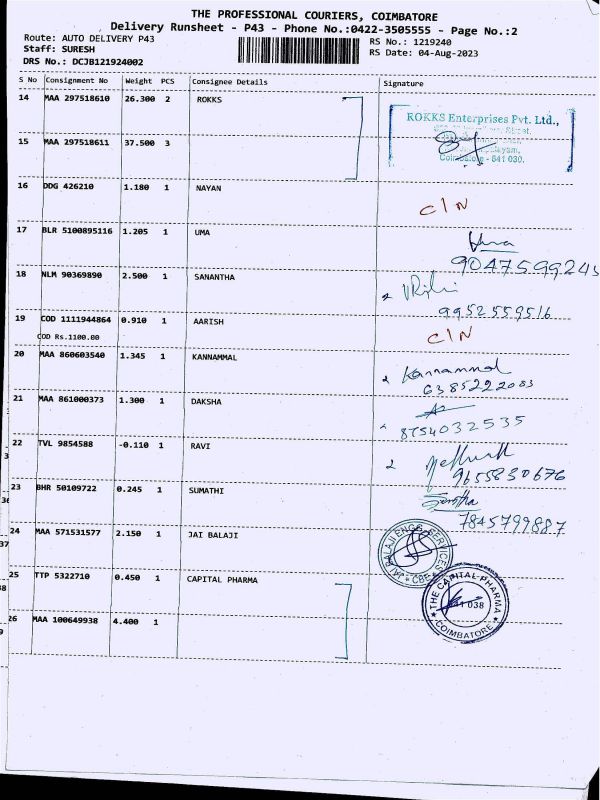 THE PROFESSIONAL COURIERS, COIMBATORE
Delivery Runsheet - P43 - Phone No.:0422-3505555 - Page No.:2
Route: AUTO DELIVERY P43
RS No.: 1219240
Staff: SURESH
RS Date: 04-Aug-2023
DRS No.: DCJB121924002
S No Consignment No Weight PCS Consignee Details Signature
14 MAA 297518610 26.300 2 ROKKS
ROKKS Enterprises Pvt. Ltd.,
15 MAA 297518611 37.500 3
Coimbatore - 641 030.
16 DDG 426210 1.180 1 NAYAN
C/N
17 BLR 5100895116 1.205 1 UMA
Uma
9047599243
18 NLM 90369890 2.500 1 SANANTHA
9952559516
19 COD 1111944864 0.910 1 AARISH
COD Rs.1100.00
C/N
20 MAA 860603540 1.345 1 KANNAMMAL
Kannammal
6385222083
21 MAA 861000373 1.300 1 DAKSHA
8754032535
22 TVL 9854588 -0.110 1 RAVI
9655830676
23 BHR 50109722 0.245 1 SUMATHI
7845799887
24 MAA 571531577 2.150 1 JAI BALAJI
JAI BALAJI ENGG SERVICES CBE
25 TTP 5322710 0.450 1 CAPITAL PHARMA
THE CAPITAL PHARMA
038
COIMBATORE
26 MAA 100649938 4.400 1